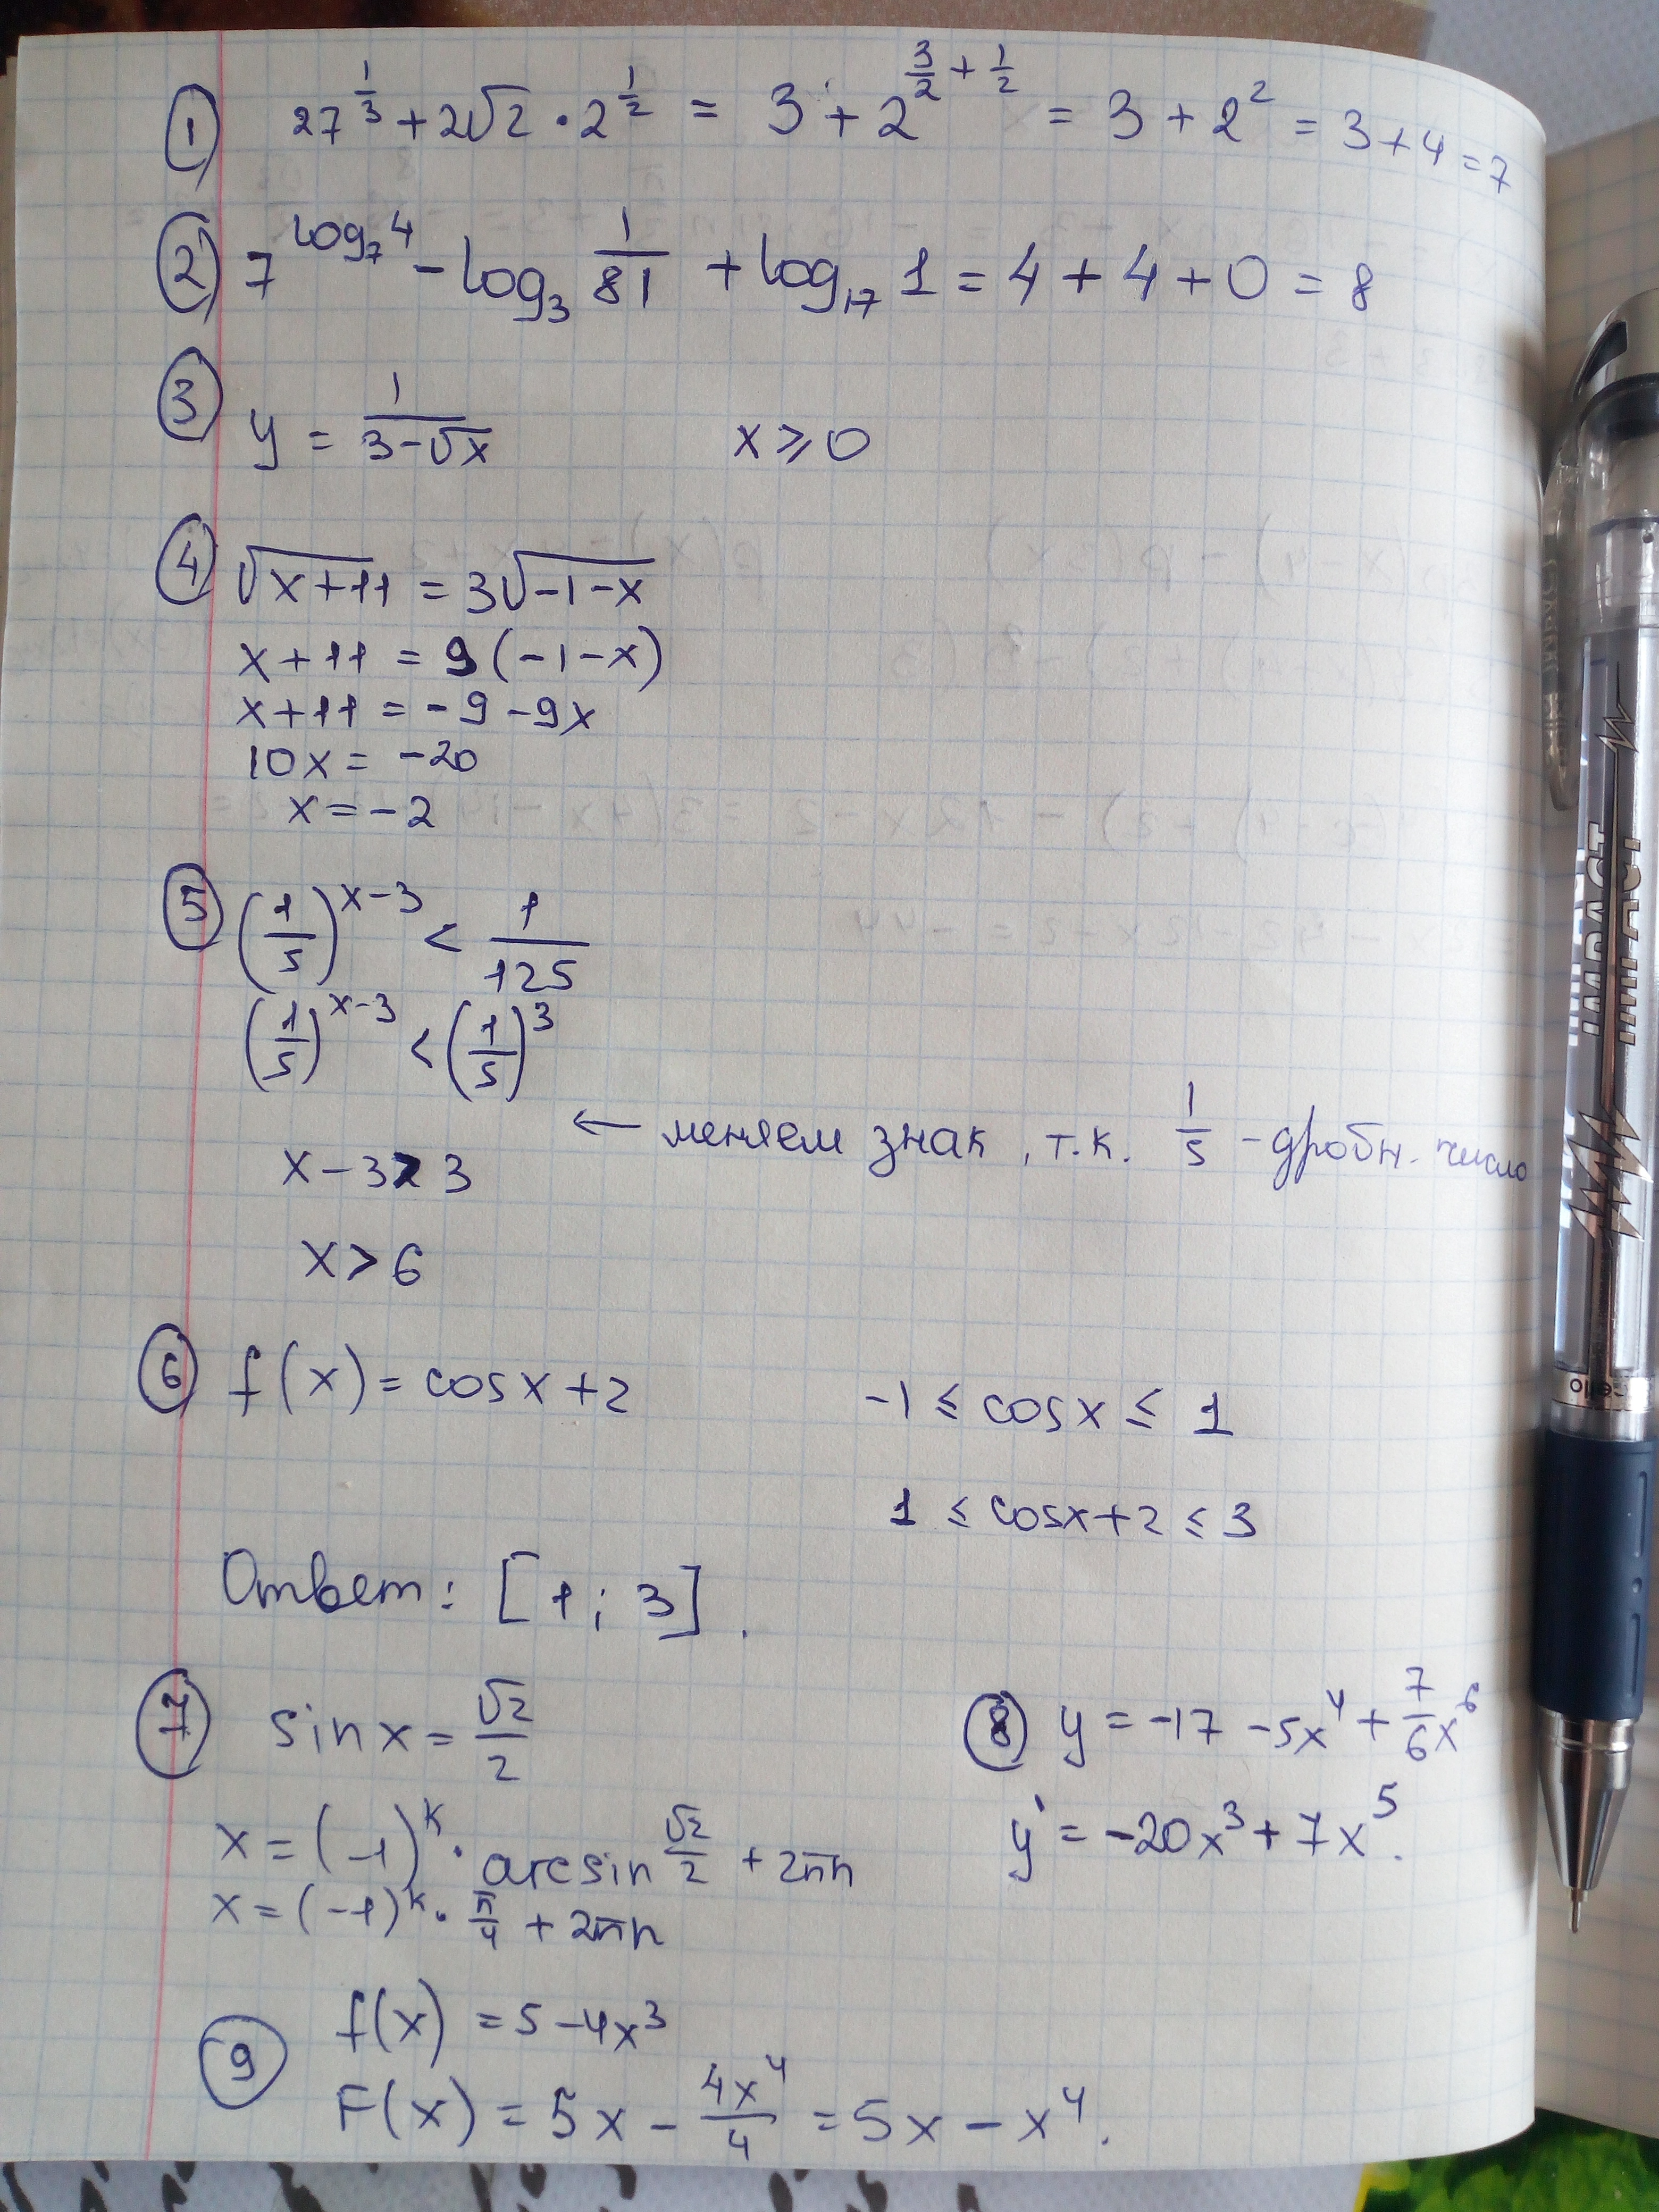 ① 27^(1/3) + 2√2 · 2^(1/2) = 3 + 2^(3/2 + 1/2) = 3 + 2² = 3 + 4 = 7
② 7^(log₇4) - log₃ 1/81 + log₁₇ 1 = 4 + 4 + 0 = 8
③ y = 1/(3-√x)    x ⩾ 0
④ √(x+11) = 3√(-1-x)
x+11 = 9(-1-x)
x+11 = -9-9x
10x = -20
x = -2
⑤ (1/5)^(x-3) < 1/125
(1/5)^(x-3) < (1/5)^3
← меняем знак, т.к. 1/5 - дробн. число
x-3 > 3
x > 6
⑥ f(x) = cosx+2    -1 ≤ cosx ≤ 1
1 ≤ cosx+2 ≤ 3
Ответ: [1; 3].
⑦ sinx = √2/2
x = (-1)^k · arcsin √2/2 + 2πn
x = (-1)^k · π/4 + 2πn
⑧ y = -17 -5x⁴ + 7/6 x⁶
y' = -20x³ + 7x⁵.
⑨ f(x) = 5-4x³
F(x) = 5x - 4x⁴/4 = 5x - x⁴.
IMPACT